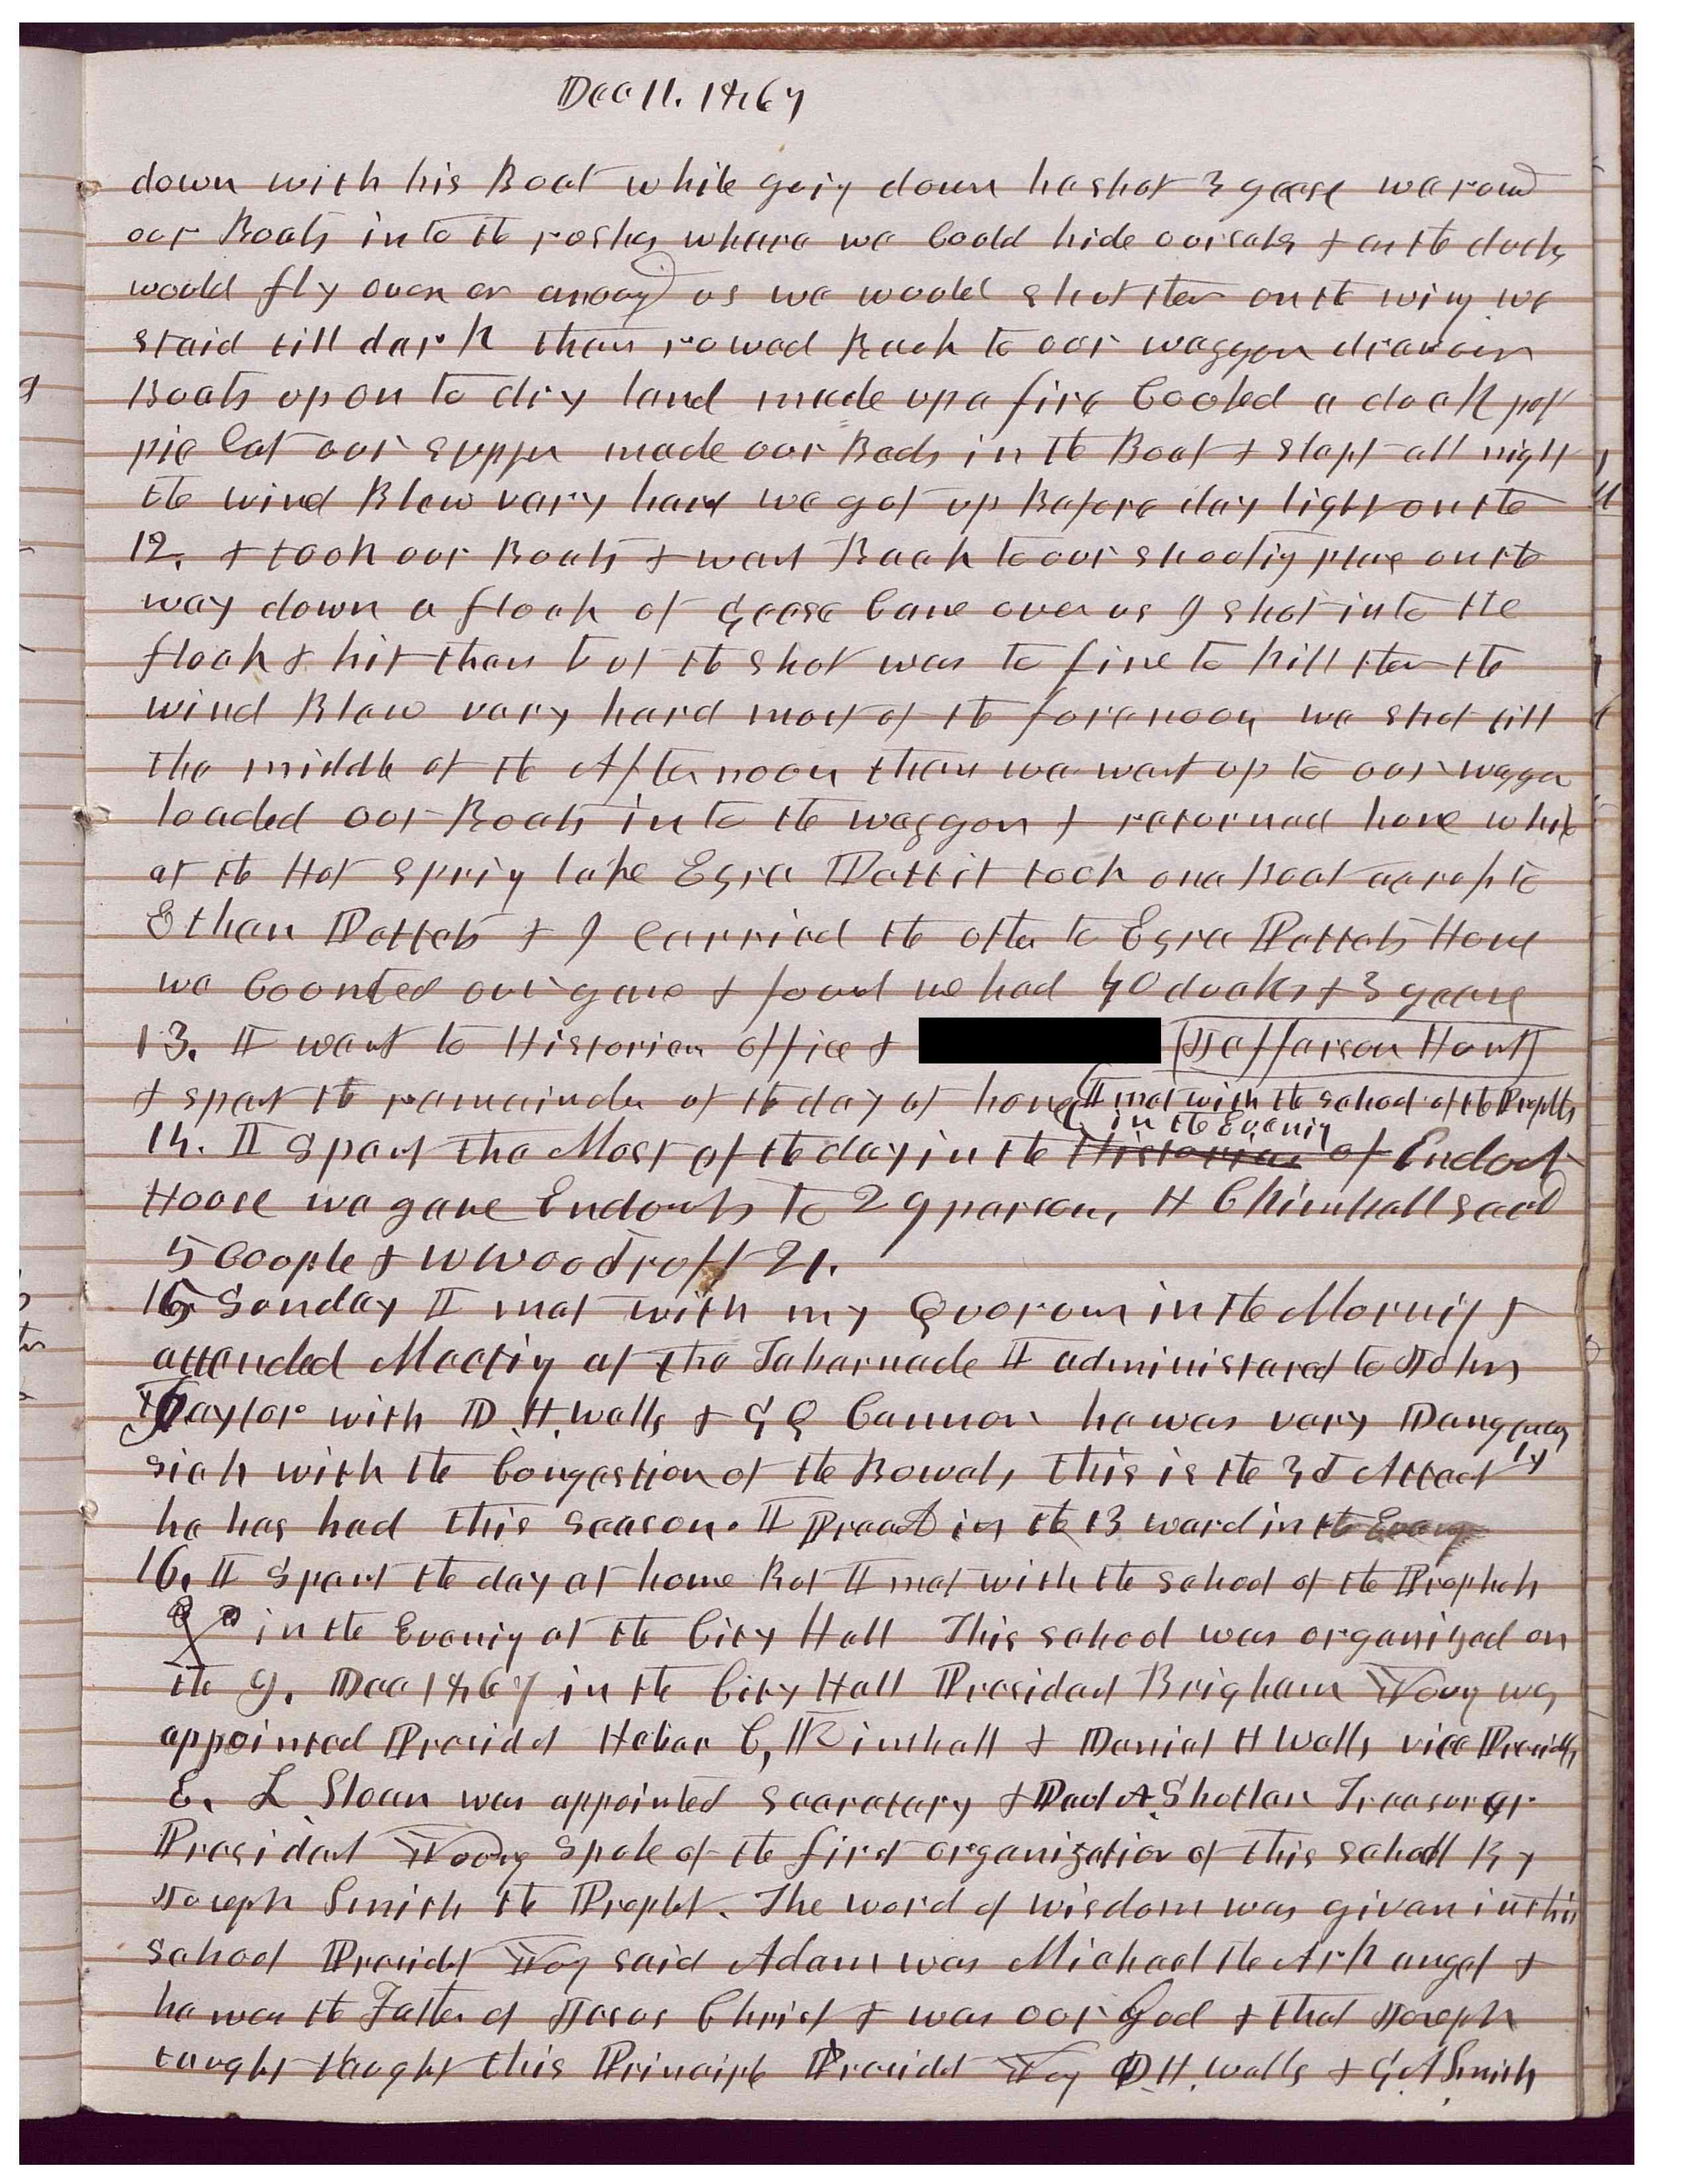 Dec 11. 1867
down with his Boat while goig down he shot 3 geese we rowd
our Boats into the rushes where we Could hide ourselves & as the ducks
would fly over or around us we would shoot them on the wing we
staid till dark then rowed Back to our waggon draw our
Boats up on to dry land made up a fire Cooked a duck pot
pie Eat our supper made our Beds in the Boat & slept all night
the wind Blew very hard we got up Before day light on the
12. & took our Boats & went Back to our shooting place on the
way down a flock of Geese Came over us I shot into the
flock & hit them but the shot was to fine to kill them the
wind Blew very hard most of the forenoon we shot till
the middle of the Afternoon then we went up to our waggon
loaded our Boats into the waggon & returned home while
at the Hot Spring lake Ezra Pettit took one Boat across to
Ethan Pettets & I carried the other to Ezra Pettets Home
we Counted our game & found we had 40 ducks & 3 geese
13. I went to Historian office & (Jefferson Hunt)
& spent the remainder of the day at home I met with the school of the Prophets
in the Evening
14. I spent the Most of the day in the Historian of Endowt
House we gave Endowts to 29 persons, H C Kimball seald
5 Couple & W Woodruff 21.
15 Sunday I met with my Quorum in the Morning &
attended Meeting at the Tabernacle I administered to John
Taylor with D. H. Wells & G Q Cannon he was very Dangerously
sick with the Congestion of the Bowels, this is the 3d Attact
he has had this season. I Preacht in the 13 ward in the Evening
16. I spent the day at home But I met with the school of the Prophets
in the Evening at the City Hall This school was organized on
the 9. Dec 1867 in the City Hall President Brigham Young was
appointed Presidet Heber C, Kimball & Daniel H Wells vice Presidts
E. L Sloan was appointed Secretary & Pau A Shetlar Treasurer
President Young Spoke of the first organization of this school By
Joseph Smith the Prophet. The word of wisdom was given in this
school Presidet Yog said Adam was Michael the Ark angel &
he was the Father of Jesus Christ & was our God & that Joseph
taught taught this Principle Presidet Yog D. H. Wells & G. A Smith